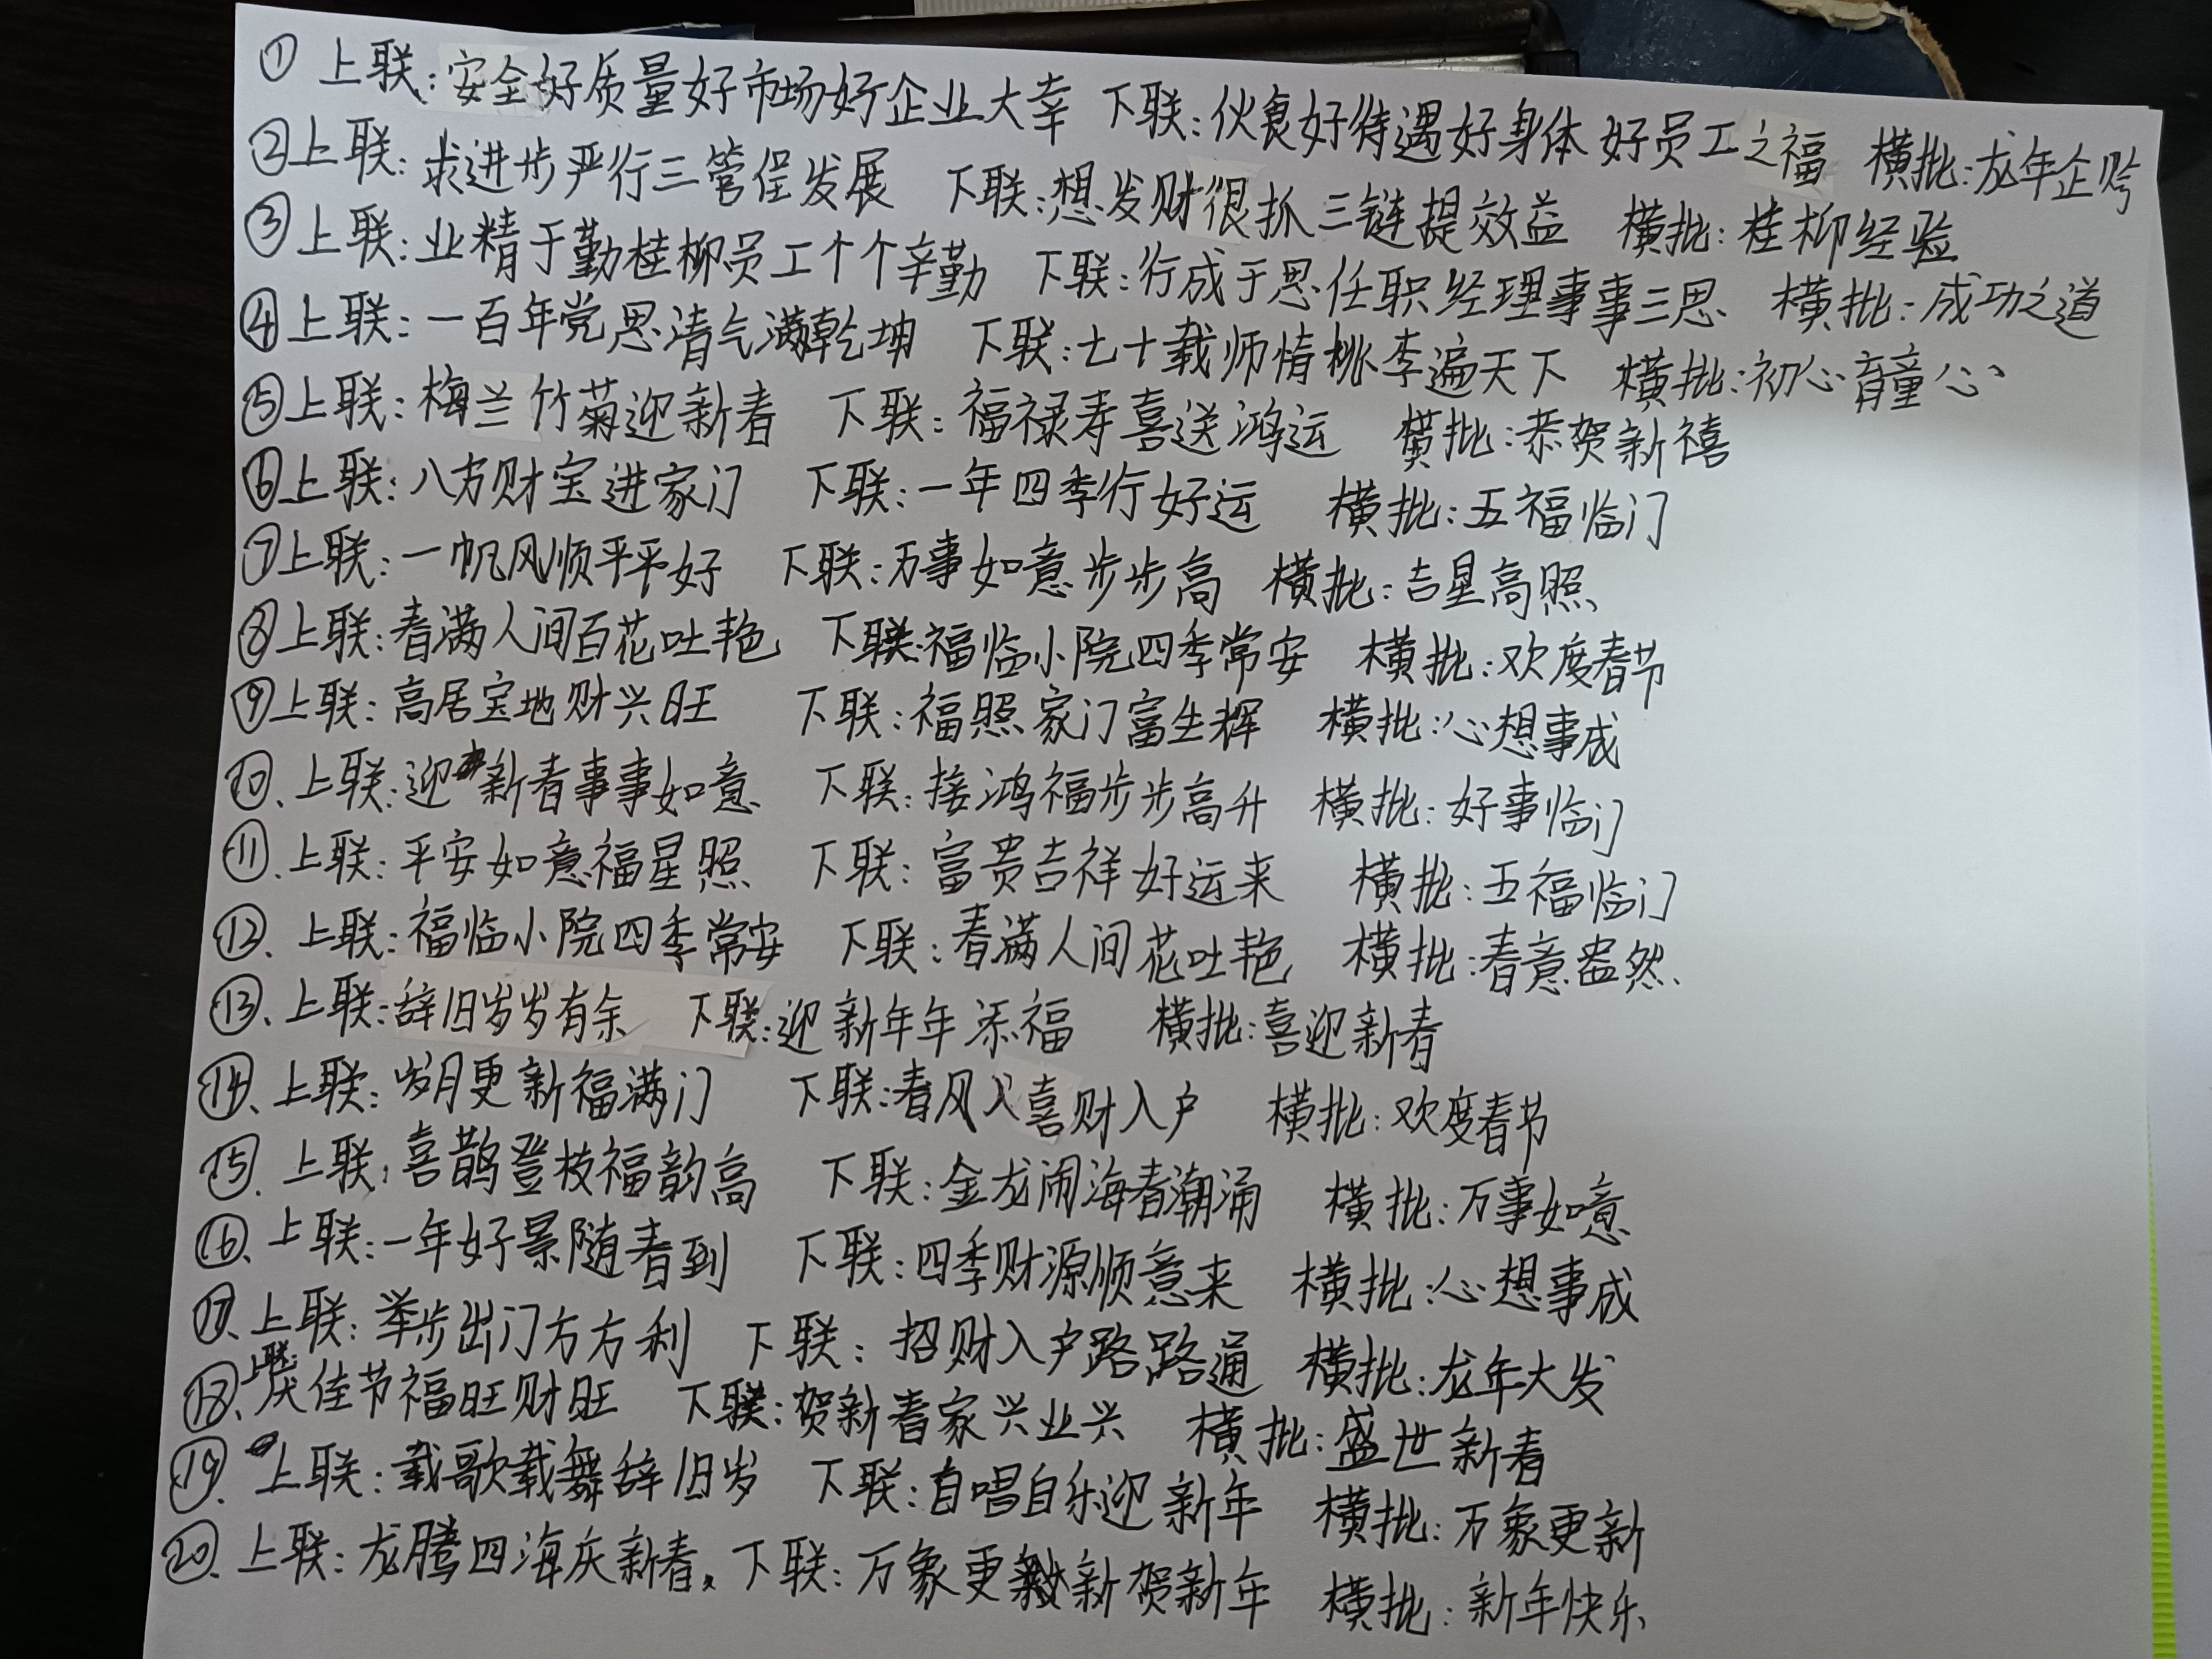 ① 上联:安全好质量好市场好企业大幸 下联:伙食好待遇好身体好员工之福 横批:龙年企兮
② 上联:求进步严行三管促发展 下联:想发财很抓三链提效益 横批:桂柳经验
③ 上联:业精于勤桂柳员工个个辛勤 下联:行成于思任职经理事事三思 横批:成功之道
④ 上联:一百年党恩清气满乾坤 下联:七十载师情桃李遍天下 横批:初心育童心
⑤ 上联:梅兰竹菊迎新春 下联:福禄寿喜送鸿运 横批:恭贺新禧
⑥ 上联:八方财宝进家门 下联:一年四季行好运 横批:五福临门
⑦ 上联:一帆风顺平平好 下联:万事如意步步高 横批:吉星高照
⑧ 上联:春满人间百花吐艳 下联:福临小院四季常安 横批:欢度春节
⑨ 上联:高居宝地财兴旺 下联:福照家门富生辉 横批:心想事成
⑩、上联:迎新春事事如意 下联:接鸿福步步高升 横批:好事临门
⑪、上联:平安如意福星照 下联:富贵吉祥好运来 横批:五福临门
⑫、上联:福临小院四季常安 下联:春满人间花吐艳 横批:春意盎然、
⑬、上联:辞旧岁岁有余 下联:迎新年年添福 横批:喜迎新春
⑭、上联:岁月更新福满门 下联:春风入喜财入户 横批:欢度春节
⑮、上联:喜鹊登枝福韵高 下联:金龙闹海春潮涌 横批:万事如意
⑯、上联:一年好景随春到 下联:四季财源顺意来 横批:心想事成
⑰、上联:举步出门方方利 下联:招财入户路路通 横批:龙年大发
⑱、上联:庆佳节福旺财旺 下联:贺新春家兴业兴 横批:盛世新春
⑲、上联:载歌载舞辞旧岁 下联:自唱自乐迎新年 横批:万象更新
⑳、上联:龙腾四海庆新春、下联:万象更新贺新年 横批:新年快乐